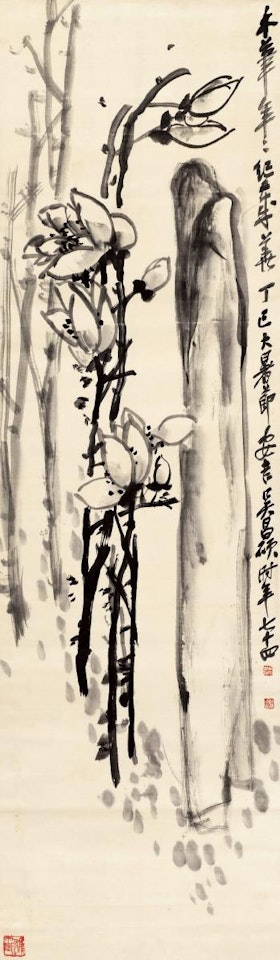 木筆年〻紀歲華 丁巳大暑節 安吉吳昌碩時年七十四